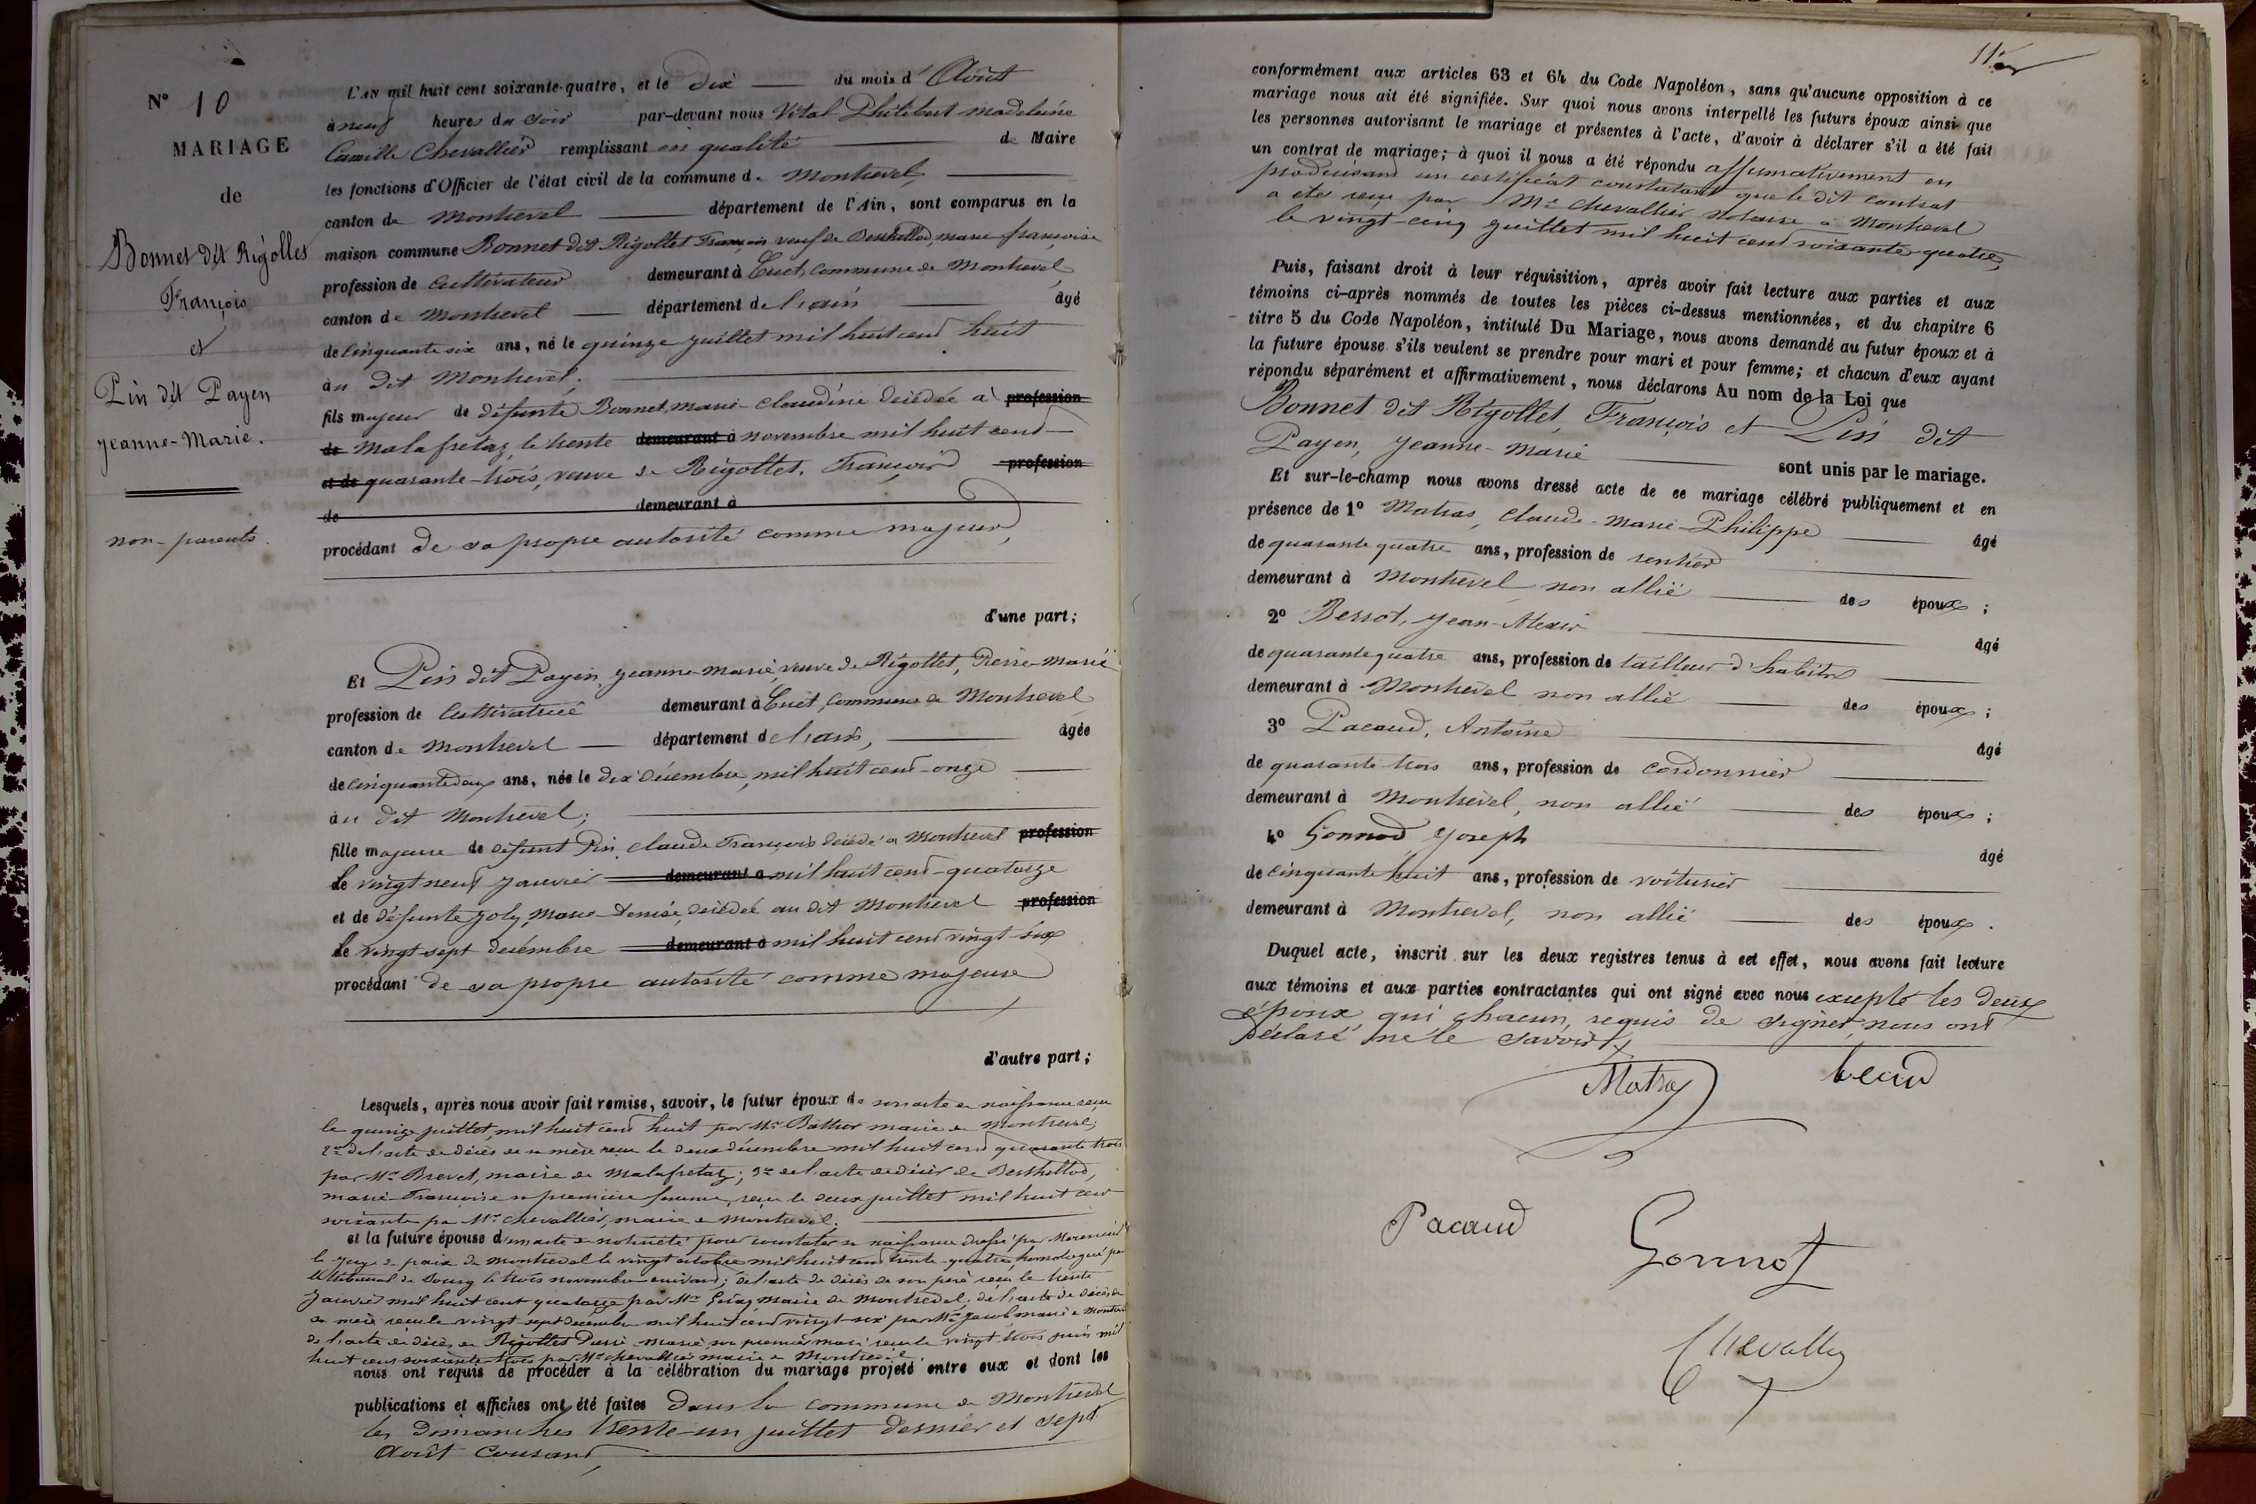 N° 10
MARIAGE
de
Bonnet dit Rigollet
François
et
Pin dit Payen
Jeanne-Marie.
non-parents.
L'AN mil huit cent soixante-quatre, et le dix du mois d'Août
à neuf heures du soir par-devant nous Vital Philibert Madeleine
Camille Chevallier remplissant en qualité de Maire
les fonctions d'Officier de l'état civil de la commune de Montrevel,
canton de Montrevel département de l'Ain, sont comparus en la
maison commune Bonnet dit Rigollet François veuf de Berthillod, marie françoise
profession de Cultivateur demeurant à Cuet, Commune de Montrevel,
canton de Montrevel département de l'ain âgé
de cinquante six ans, né le quinze juillet mil huit cent huit
à u dit Montrevel;
fils majeur de défunte Bonnet, marie-claudine décédée à profession
de Malafretaz, le trente demeurant à novembre mil huit cent
et de quarante-trois, veuve de Rigollet, François profession
de demeurant à
procédant de sa propre autorité comme majeur,
d'une part;
Et Pin dit Payen, jeanne-marie, veuve de Rigollet, Pierre-Marie
profession de Cultivatrice demeurant à Cuet, Commune de Montrevel
canton de Montrevel département de l'ain, âgée
de cinquante deux ans, née le dix décembre, mil huit cent-onze
à u dit Montrevel;
fille majeure de défunt Pin, claude François décédé à Montrevel profession
de vingt neuf janvier demeurant à mil huit cent-quatorze
et de défunte Joly, Marie-Denise, décédée au dit Montrevel profession
de vingt-sept décembre demeurant à mil huit cent vingt-six
procédant de sa propre autorité comme majeure
d'autre part;
Lesquels, après nous avoir fait remise, savoir, le futur époux de son acte de naissance reçu
le quinze juillet, mil huit cent huit par Mr. maire de Montrevel;
2° de l'acte de décès de sa mère reçu le deux décembre mil huit cent quarante trois
par Mr. Brevet, maire de Malafretaz; 3° de l'acte de décès de Berthillod,
marie-Françoise sa première femme, reçu le deux juillet mil huit cent
soixante par Mr. chevallier, maire de Montrevel.
et la future épouse d'un acte de notoriété pour constater sa naissance dressé par
le juge de paix de Montrevel le vingt octobre mil huit cent trente-quatre, homologué par
le tribunal de Bourg le trois novembre suivant; de l'acte de décès de son père reçu le trente
janvier mil huit cent quatorze par Mr. maire de Montrevel, de l'acte de décès de
sa mère reçu le vingt-sept décembre mil huit cent vingt-six par Mr. Jacob maire de Montrevel
de l'acte de décès de Rigollet Pierre-Marie, son premier mari, reçu le vingt trois juin mil
huit cent soixante-trois par Mr. chevallier maire de Montrevel.
nous ont requis de procéder à la célébration du mariage projeté entre eux et dont les
publications et affiches ont été faites dans la commune de Montrevel
les Dimanches trente-un juillet dernier et sept
Août courant,
conformément aux articles 63 et 64 du Code Napoléon, sans qu'aucune opposition à ce
mariage nous ait été signifiée. Sur quoi nous avons interpellé les futurs époux ainsi que
les personnes autorisant le mariage et présentes à l'acte, d'avoir à déclarer s'il a été fait
un contrat de mariage; à quoi il nous a été répondu affirmativement en
produisant un certificat constatant que le dit contrat
a été reçu par Me. chevallier Notaire à Montrevel
le vingt-cinq juillet mil huit cent soixante-quatre,
Puis, faisant droit à leur réquisition, après avoir fait lecture aux parties et aux
témoins ci-après nommés de toutes les pièces ci-dessus mentionnées, et du chapitre 6
titre 5 du Code Napoléon, intitulé Du Mariage, nous avons demandé au futur époux et à
la future épouse s'ils veulent se prendre pour mari et pour femme; et chacun d'eux ayant
répondu séparément et affirmativement, nous déclarons Au nom de la Loi que
Bonnet dit Rigollet, François et Pin dit
Payen, Jeanne-Marie sont unis par le mariage.
Et sur-le-champ nous avons dressé acte de ce mariage célébré publiquement et en
présence de 1° Matras, Claude-Marie-Philippe âgé
de quarante quatre ans, profession de rentier
demeurant à Montrevel non allié des époux;
2° Bessot, Jean-Alexis âgé
de quarante quatre ans, profession de tailleur d'habits
demeurant à Montrevel non allié des époux;
3° Pacaud, Antoine âgé
de quarante trois ans, profession de cordonnier
demeurant à Montrevel, non allié des époux;
4° Gonnod Joseph âgé
de cinquante huit ans, profession de voiturier
demeurant à Montrevel, non allié des époux.
Duquel acte, inscrit sur les deux registres tenus à cet effet, nous avons fait lecture
aux témoins et aux parties contractantes qui ont signé avec nous excepté les deux
époux qui chacun, requis de signer, nous ont
déclaré ne le savoir.
Matras
Pacaud
Gonnot
Chevallier